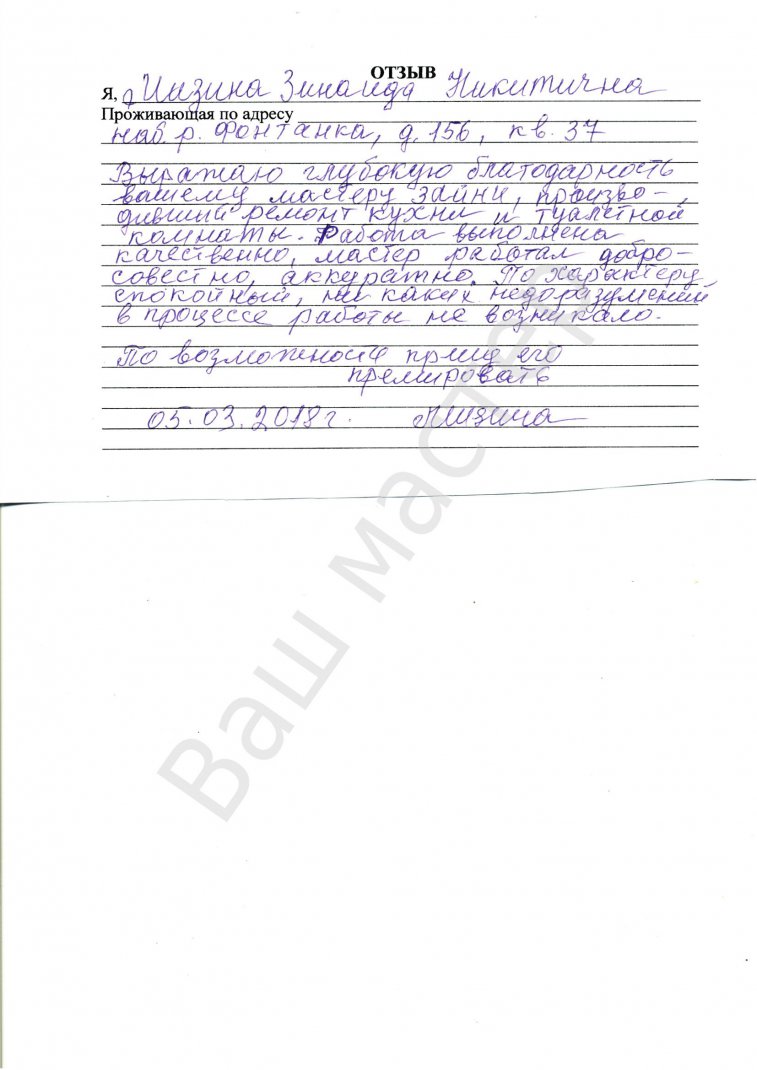 ОТЗЫВ
Я, Зинаида Никитична
Проживающая по адресу
наб. р. Фонтанка, д. 156, кв. 37
Выражаю глубокую благодарность
вашему мастеру Зайни, произво-
дивший ремонт кухни и туалетной
комнаты. Работа выполнена
качественно, мастер работал добро-
совестно, аккуратно. По характеру
спокойный, ни каких недоразумений
в процессе работы не возникало.
По возможности прошу его
премировать
05.03.2018 г.
Ваш мастер